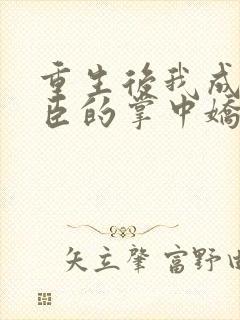 重生後我成
臣的掌中嬌
矢立肇 富野由